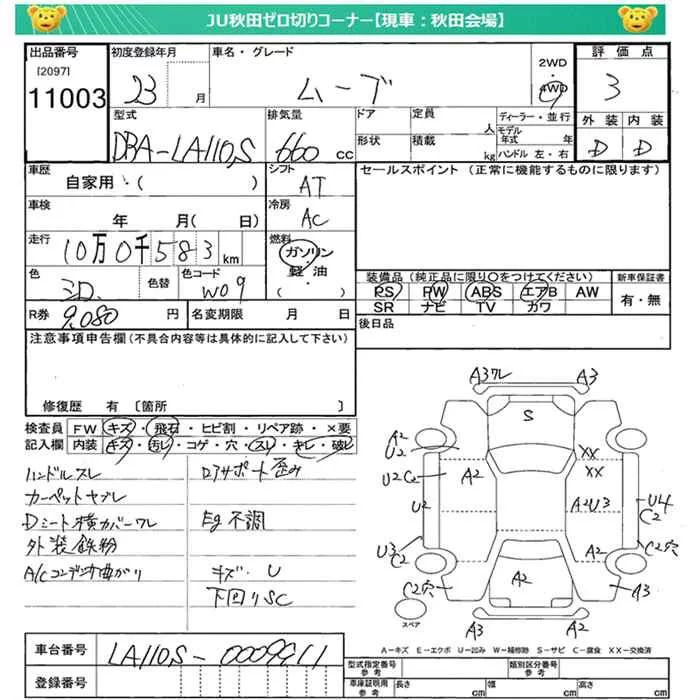 JU秋田ゼロ切りコーナー【現車：秋田会場】
出品番号
[2097]
11003
初度登録年月
23 月
車名・グレード
ムーブ
2WD
4WD
評価点
3
外装 内装
D D
型式
DBA-LA110S
排気量
660 cc
ドア
定員
人
ディーラー・並行
モデル年式 年
形状
積載
kg
ハンドル 左・右
車歴
自家用・( )
シフト
AT
セールスポイント (正常に機能するものに限ります)
車検
年 月( 日)
冷房
AC
走行
10万0千583km
燃料
ガソリン
軽・油
( )
色
色替
色コード
W09
装備品 (純正品に限り○をつけてください)
新車保証書
PS PW ABS エアB AW
有・無
SR ナビ TV カワ
R券
9,080 円
名変期限 月 日
後日品
注意事項申告欄(不具合内容等は具体的に記入して下さい)
修復歴 有 〔箇所 〕
検査員
記入欄
FW キズ・飛石・ヒビ割・リペア跡・×要
内装 キズ・汚レ・コゲ・穴・スレ・キレ・破レ
ハンドルスレ
ロアサポート歪み
カーペットヤブレ
Dシート横カバーワレ
Eg不調
外装鉄粉
A/Cコンデンサ曲がり
キズ・U
下回りSC
A3ワレ
A3
S
A2
U2
XX
XX
U2C2
A2
U2
A2U3
U4
C2
U3
C2
A2
C2穴
C2穴
A2
A3
スペア
A3
A2
A－キズ E－エクボ U－凹み W－補修跡 S－サビ C－腐食 XX－交換済
車台番号
LA110S-0009911
登録番号
型式指定番号
参考
類別区分番号
参考
車庫証明用
参考
長さ cm
幅 cm
高さ cm